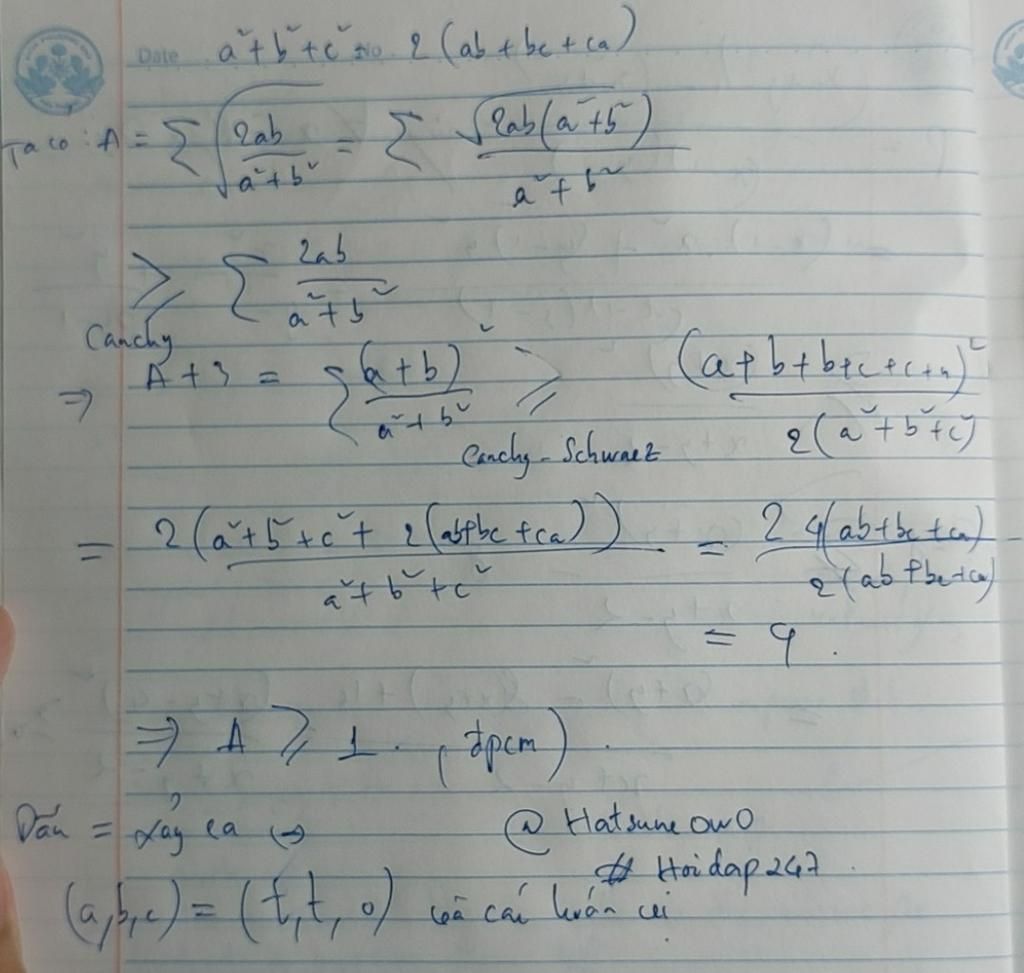 Date a² + b² + c² = No 2(ab + bc + ca)
Ta có: A = ∑ √(2ab / (a² + b²)) = ∑ √(2ab(a² + b²)) / (a² + b²)
≥ ∑ 2ab / (a² + b²)
Cauchy
⇒ A + 3 = ∑ (a + b)² / (a² + b²) ≥ (a + b + b + c + c + a)² / 2(a² + b² + c²)
Cauchy - Schwarz
= 2(a² + b² + c² + 2(ab + bc + ca)) / (a² + b² + c²) = 2 4(ab + bc + ca) / 2(ab + bc + ca)
= 4.
⇒ A ≥ 1. (đpcm).
Dấu = xảy ra ⇔
@ Hatsune OwO
# Hoidap247.
(a, b, c) = (t, t, 0) và các hoán vị